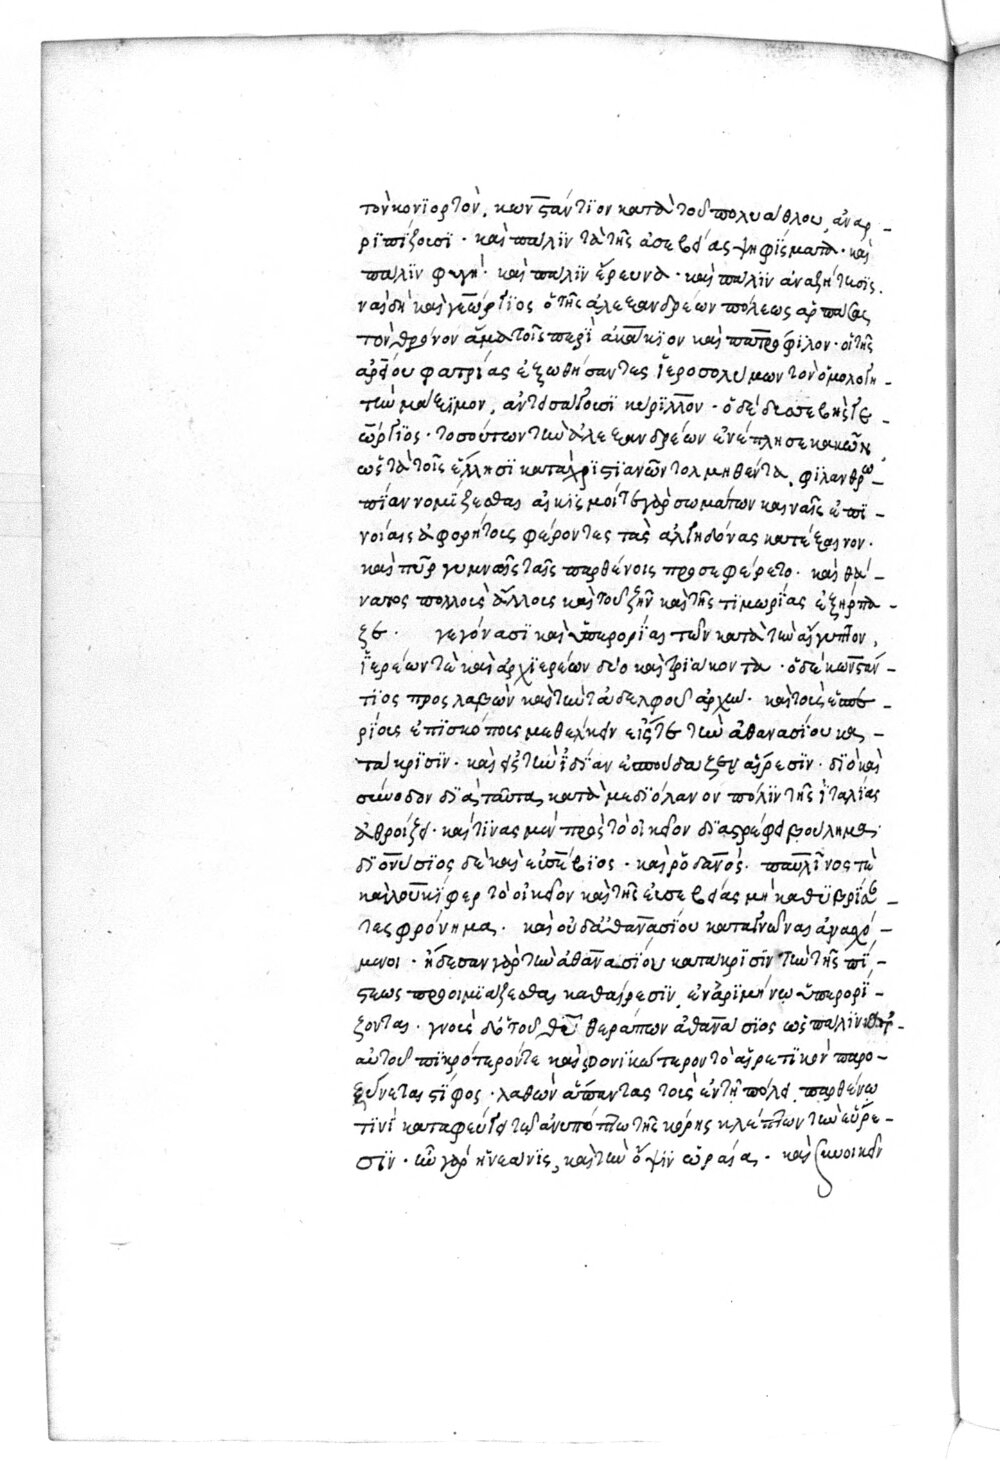 τὸν κονϊορτὸν, κωνστάντϊον κατὰ τοῦ πολυάθλου, ἀναρ-
ρϊπίζουσϊ · καὶ πάλϊν τὰ τῆς ἀσεβείας ψηφΐσματα · καὶ
πάλϊν φυγή · καὶ πάλϊν ἔρευνα · καὶ πάλϊν ἀναζήτησϊς.
ναὶ δὴ καὶ γεώργϊος ὁ τῆς ἀλεξανδρέων πόλεως ἁρπάσας
τὸν θρόνον ἅμα τοῖς περὶ ἀκάκϊον καὶ πατρόφϊλον · οἱ τῆς
ἀρείου φατρίας ἐξωθήσαντες ἱεροσολύμων τὸν ὁμολογη-
τὴν μάξϊμον, ἀντεισάγουσι κύρϊλλον · ὁ δὲ δυσσεβὴς γε-
ώργϊος · τοσούτων τὴν ἀλεξανδρέων ἐνέπλησε κακῶν
ὡς τὰ τοῖς ἕλλησϊ κατὰ χρϊστϊανῶν τολμηθέντα, φϊλανθρω-
πίαν νομΐζεσθαι αἰκϊσμοί τε γὰρ σωμάτων καιναῖς ἐπϊ-
νοίαις ἀφορήτοις φέροντες τὰς ἀλγηδόνας κατέξαινον ·
καὶ πῦρ γυμναῖς ταῖς παρθένοις προσεφέρετο · καὶ θά-
νατος πολλοὺς ἄλλους καὶ τοῦ ζῆν καὶ τῆς τϊμωρίας ἐξήρπα-
ζε · γεγόνασϊ καὶ ὑπερορίαι τῶν κατὰ τὴν αἴγυπτον,
ἱερέων τὲ καὶ ἀρχϊερέων δύο καὶ τρϊάκοντα · ὁ δὲ κωνστάν-
τϊος προσλαβὼν καὶ τὴν τἀδελφοῦ ἀρχὴν · καὶ τοὺς ἑσπε-
ρίους ἐπϊσκόπους μεθέλκειν εἴς τε τὴν ἀθανασίου κα-
τάκρϊσϊν · καὶ εἰς τὴν ἰδίαν ἐσπούδαζεν αἵρεσϊν · δϊὸ καὶ
σύνοδον δϊὰ ταῦτα, κατὰ μεδϊόλανον πόλϊν τῆς ἰταλίας
ἀθροίζει · καὶ τϊνας μὲν πρὸς τὸ οἰκεῖον δϊαστρέφει βούλημα ·
δϊονύσϊος δὲ καὶ εὐσέβϊος · καὶ ῥοδανὸς · παυλῖνος τὲ
καὶ λουκΐφερ τὸ οἰκεῖον καὶ τῆς εὐσεβείας μὴ καθϋβρΐσαν-
τες φρόνημα · καὶ οὐδ' ἀθανασίου καταγνῶναι ἀνασχό-
μενοι · ᾔδεσαν γὰρ τὴν ἀθανασίου κατάκρϊσϊν τὴν τῆς πί-
στεως προοιμϊάζεσθαι καθαίρεσϊν, ἐν ἀρϊμήνω ὑπερορΐ-
ζονται · γνοὺς δ' ὁ τοῦ θυ θεράπων ἀθανάσϊος ὡς πάλϊν κατ'
αὐτοῦ πϊκρότερόν τε καὶ φονϊκώτερον τὸ αἱρετϊκὸν παρο-
ξύνεται στΐφος · λαθὼν ἅπαντας τοὺς ἐν τῇ πόλει, παρθένω
τϊνὶ καταφεύγει τὸ ἀνύποπτω τῆς κόρης κλέπτων τὴν εὕρε-
σϊν · ἦν γὰρ ἡ νεᾶνϊς, καὶ τὴν ὄψϊν ὡραία · καὶ συνοικεῖν